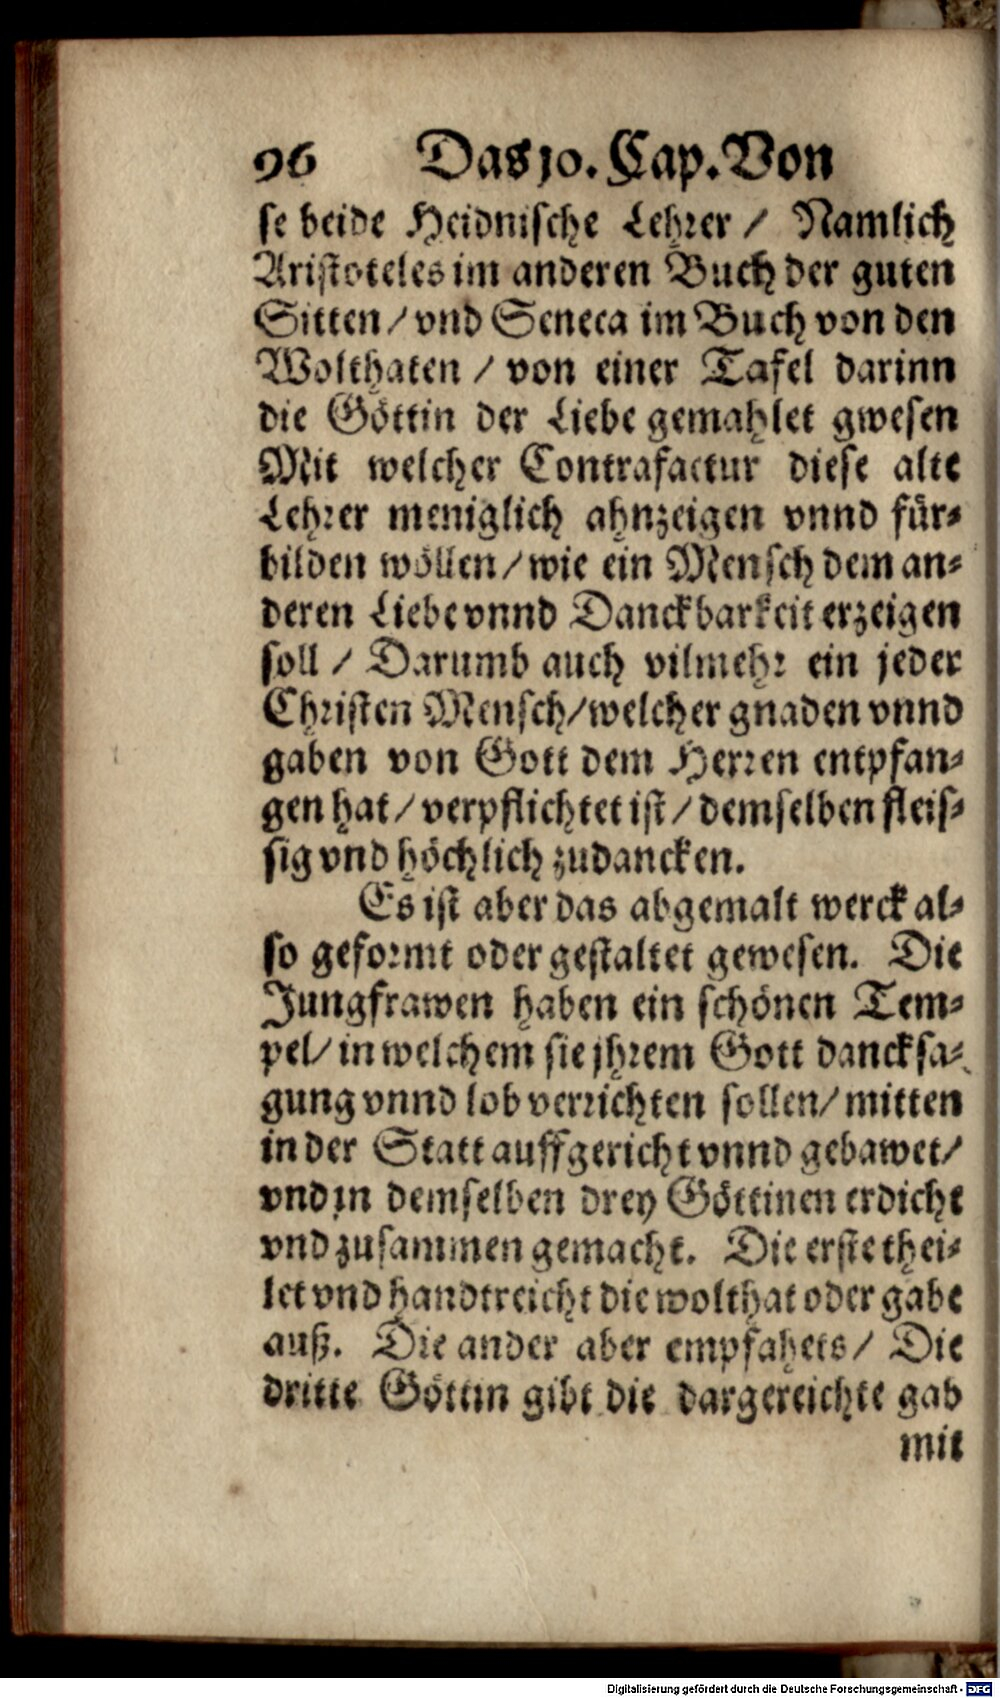 96 Das 10. Cap. Von
se beide Heidnische Lehrer / Namlich
Aristoteles im anderen Buch der guten
Sitten / vnd Seneca im Buch von den
Wolthaten / von einer Tafel darinn
die Göttin der Liebe gemahlet gwesen
Mit welcher Contrafactur diese alte
Lehrer meniglich ahnzeigen vnnd für-
bilden wöllen / wie ein Mensch dem an-
deren Liebe vnnd Danckbarkeit erzeigen
soll / Darumb auch vilmehr ein jeder
Christen Mensch / welcher gnaden vnnd
gaben von Gott dem Herren entpfan-
gen hat / verpflichtet ist / demselben fleis-
sig vnd höchlich zudancken.
Es ist aber das abgemalt werck al-
so geformt oder gestaltet gewesen. Die
Jungfrawen haben ein schönen Tem-
pel / in welchem sie jhrem Gott dancksa-
gung vnnd lob verrichten sollen / mitten
in der Statt auffgericht vnnd gebawet /
vnd in demselben drey Göttinen erdicht
vnd zusammen gemacht. Die erste thei-
let vnd handtreicht die wolthat oder gabe
auß. Die ander aber empfahets / Die
dritte Göttin gibt die dargereichte gab
mit
Digitalisierung gefördert durch die Deutsche Forschungsgemeinschaft - DFG